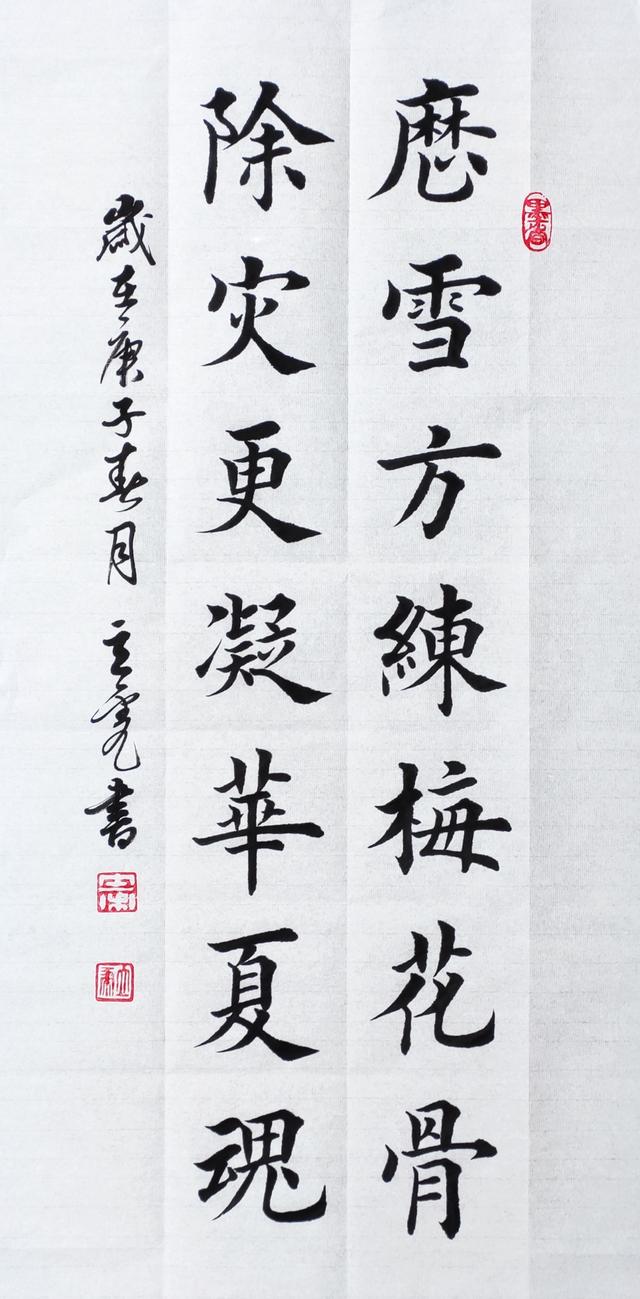 歴雪方練梅花骨
除灾更凝華夏魂
歲在庚子春月 書